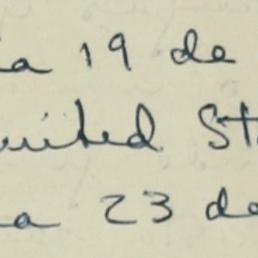 a 19 de
United St
a 23 de